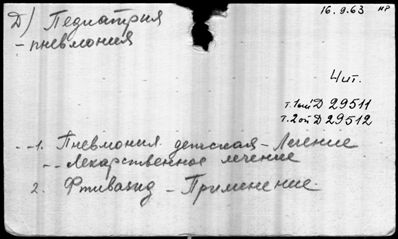 Д) Педиатрия
16.9.63 НР
- пневмония
4 чит.
т.1ый Д 29511
т.2ой Д 29512
--1. Пневмония детская - Лечение
-- Лекарственное лечение
2. Фтивазид - Применение.